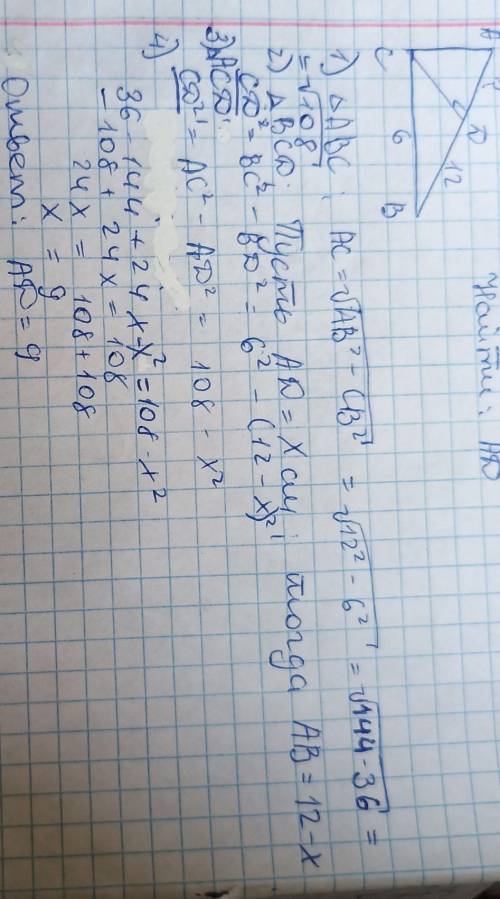 Найти: AD
A
D
12
C
6
B
1) △ABC: AC = √AB² - CB² = √12² - 6² = √144 - 36 =
= √108
2) △BCD: Пусть AD = x см; тогда AB = 12 - x
CD² = BC² - BD² = 6² - (12 - x)²
3) ACD:
CD² = AC² - AD² = 108 - x²
4)
36 - 144 + 24x - x² = 108 - x²
-108 + 24x = 108
24x = 108 + 108
x = 9
Ответ: AD = 9